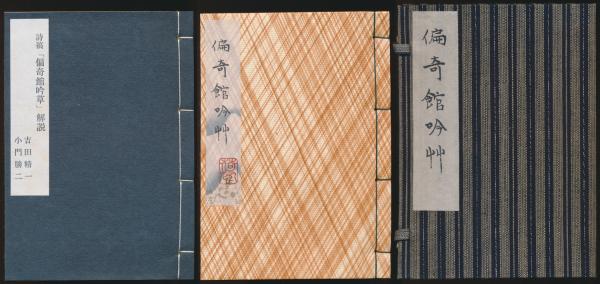 詩稿「偏奇館吟草」解説
吉田精一
小門勝二
偏奇館吟艸
偏奇館吟艸